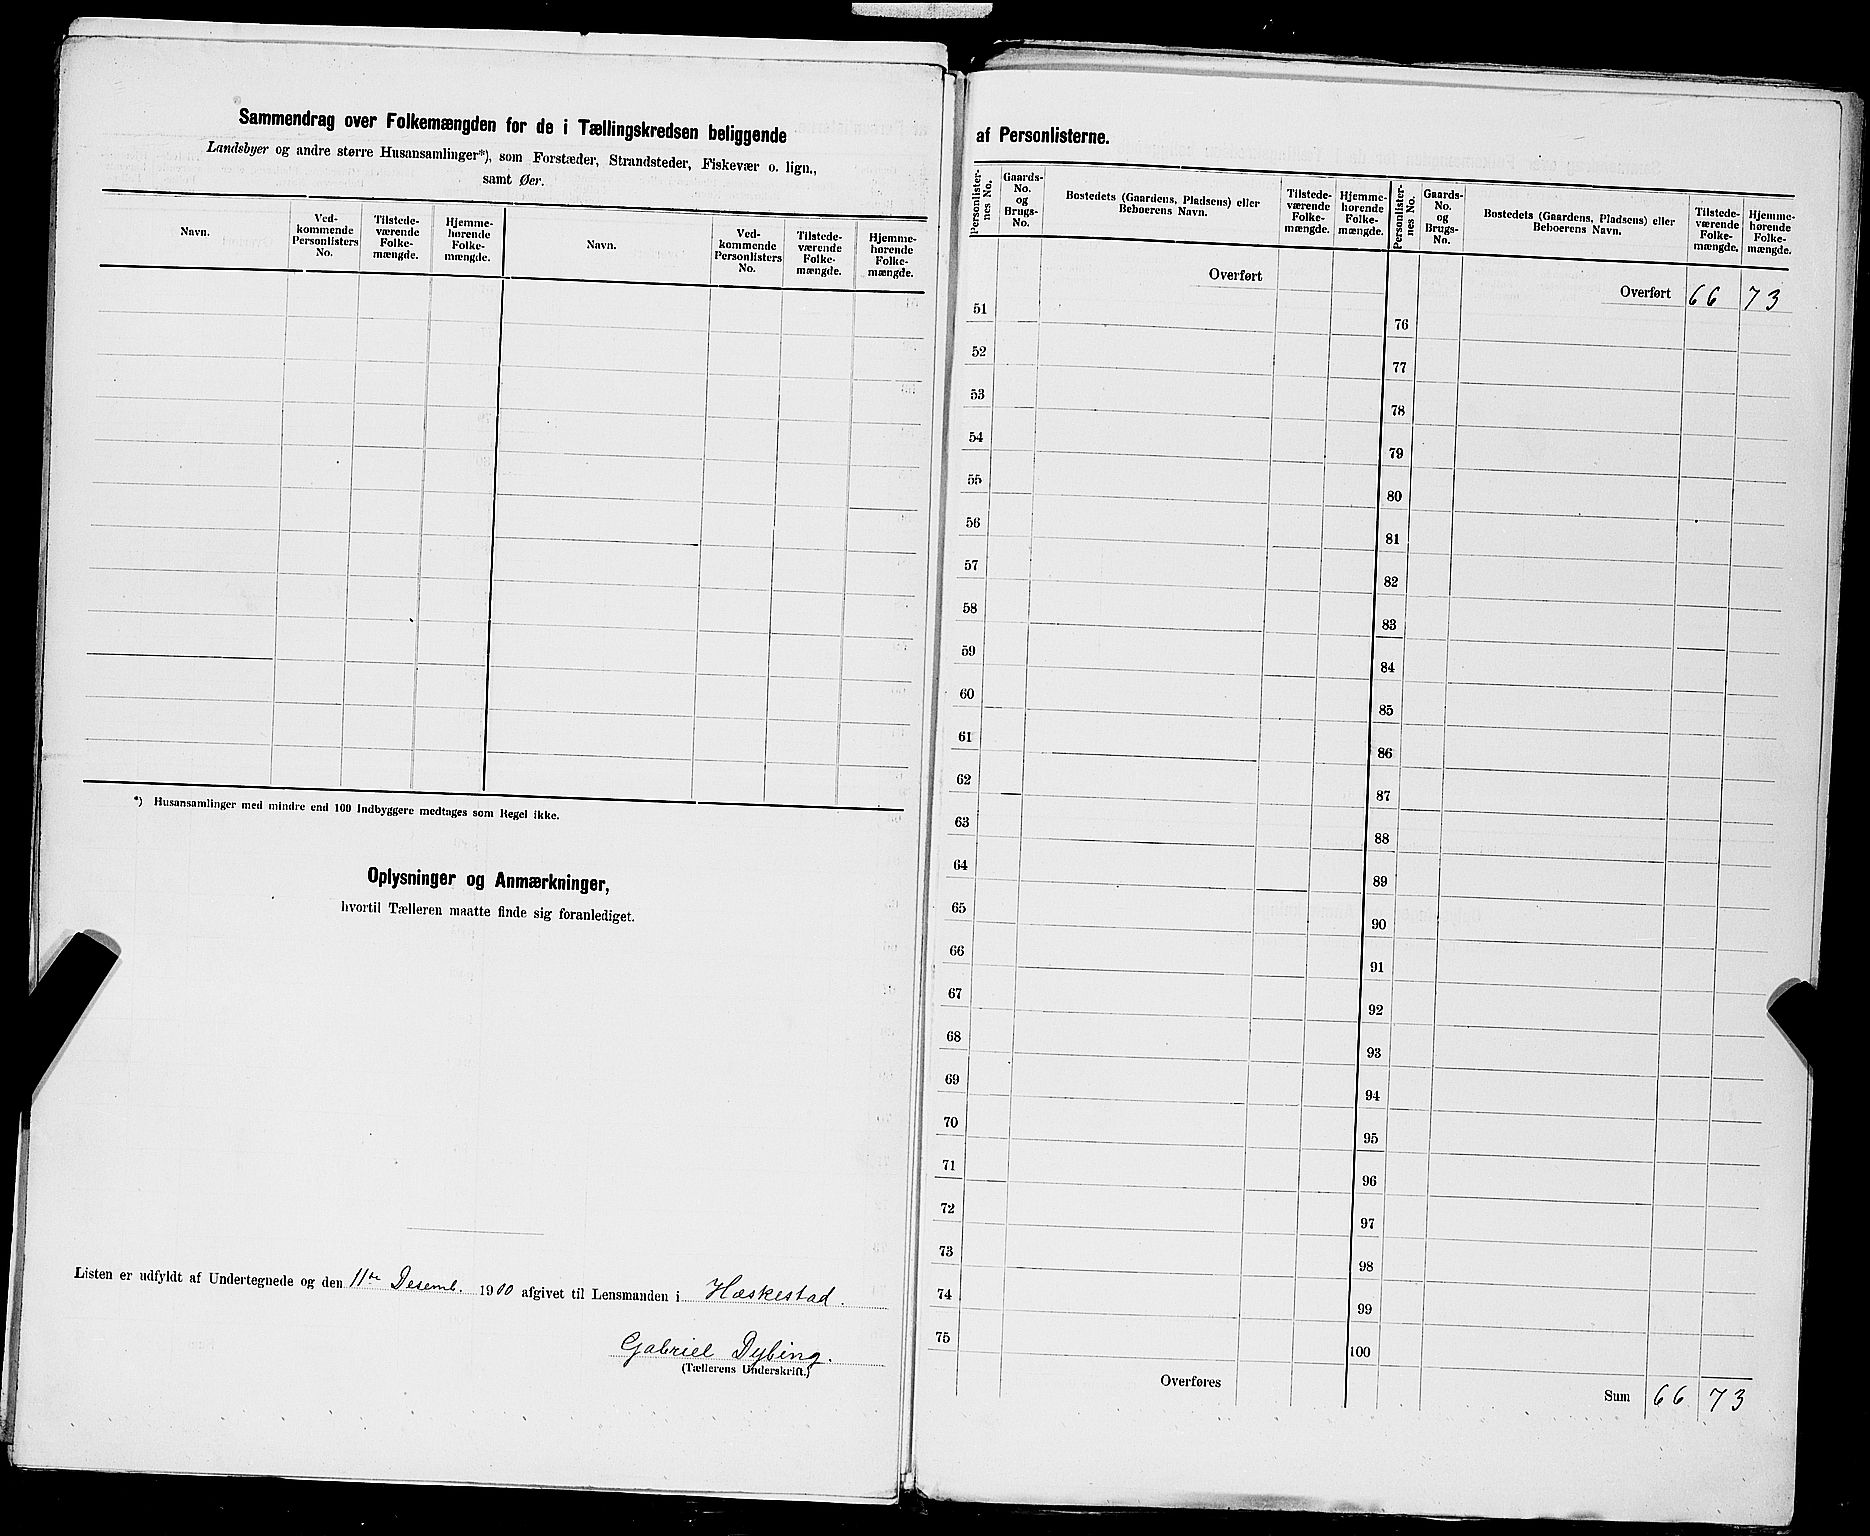 Sammendrag over Folkemængden for de i Tællingskredsen beliggende
Landsbyer og andre større Husansamlinger*), som Forstæder, Strandsteder, Fiskevær o. lign.,
samt Øer.
Navn.
Ved-
kommende
Personlisters
No.
Tilstede-
værende
Folke-
mængde.
Hjemme-
hørende
Folke-
mængde.
Navn.
Ved-
kommende
Personlisters
No.
Tilstede-
værende
Folke-
mængde.
Hjemme-
hørende
Folke-
mængde.
*) Husansamlinger med mindre end 100 Indbyggere medtages som Regel ikke.
Oplysninger og Anmærkninger,
hvortil Tælleren maatte finde sig foranlediget.
Listen er udfyldt af Undertegnede og den 11te Desemb. 1900 afgivet til Lensmanden i Hæskestad.
Gabriel Dybing.
(Tællerens Underskrift.)
af Personlisterne.
Personlister-
nes No.
Gaards-
No.
og
Brugs-
No.
Bostedets (Gaardens, Pladsens) eller
Beboerens Navn.
Tilstede-
værende
Folke-
mængde.
Hjemme-
hørende
Folke-
mængde.
Personlister-
nes No.
Gaards-
No.
og
Brugs-
No.
Bostedets (Gaardens, Pladsens) eller
Beboerens Navn.
Tilstede-
værende
Folke-
mængde.
Hjemme-
hørende
Folke-
mængde.
Overført
Overført 66 73
51 76
52 77
53 78
54 79
55 80
56 81
57 82
58 83
59 84
60 85
61 86
62 87
63 88
64 89
65 90
66 91
67 92
68 93
69 94
70 95
71 96
72 97
73 98
74 99
75 100
Overføres
Sum 66 73